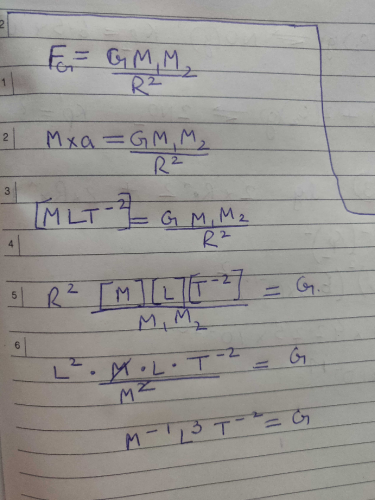 2
F_G = G M₁ M₂ / R²
1
M × a = G M₁ M₂ / R²
2
3
[M L T⁻²] = G M₁ M₂ / R²
4
5
R² [M][L][T⁻²] / M₁ M₂ = G.
6
L² · M · L · T⁻² / M² = G
M⁻¹ L³ T⁻² = G